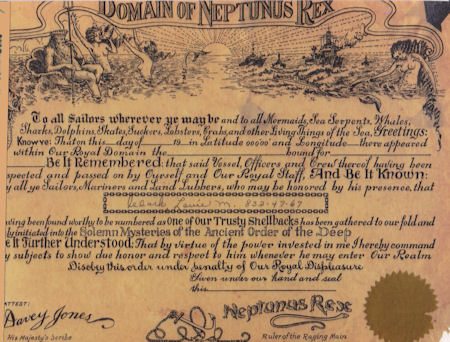 DOMAIN OF NEPTUNUS REX
To all Sailors wherever ye may be and to all Mermaids, Sea Serpents, Whales,
Sharks, Dolphins, Skates, Suckers, Lobsters, Crabs, and other Living Things of the Sea, Greetings:
Know ye: That on this day of 19 in Latitude 00000 and Longitude there appeared
within Our Royal Domain the bound for
Be It Remembered: that said Vessel, Officers and Crew thereof having been
spected and passed on by Ourself and Our Royal Staff, And Be It Known:
y all ye Sailors, Mariners and Land Lubbers, who may be honored by his presence, that
M. 832-47-67
ving been found worthy to be numbered as One of our Trusty Shellbacks has been gathered to our fold and
ly initiated into the Solemn Mysteries of the Ancient Order of the Deep
e It Further Understood: That by virtue of the power invested in me I hereby command
y subjects to show due honor and respect to him whenever he may enter Our Realm
Disobey this order under penalty of Our Royal Displeasure
Given under our hand and seal
this
ATTEST:
Davey Jones
His Majesty's Scribe
Neptunus Rex
Ruler of the Raging Main